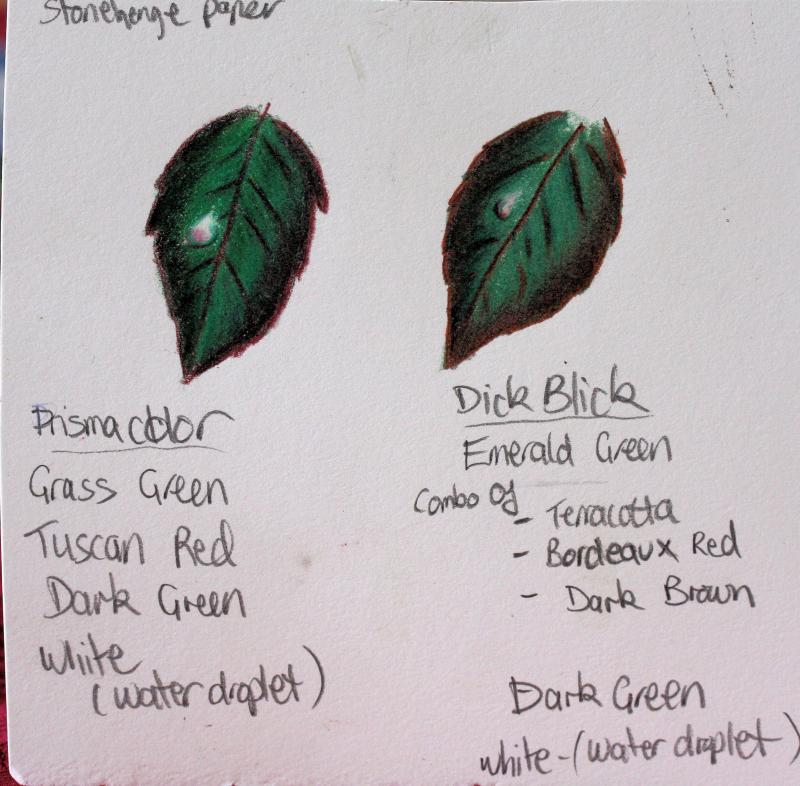 Stonehenge paper
Prismacolor
Grass Green
Tuscan Red
Dark Green
White
(water droplet)
Dick Blick
Emerald Green
Combo Of
- Terracotta
- Bordeaux Red
- Dark Brown
Dark Green
white-(water droplet)